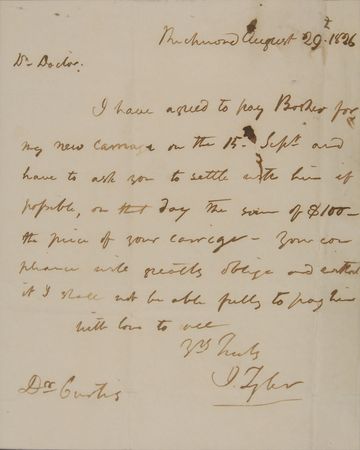 Richmond August 29th 1826
Dr Doctor.
I have agreed to pay Bosher for
my new carriage on the 15th Sept. and
have to ask you to settle with him if
possible, on that day the sum of $100-
the price of your carriage - Your com
pliance will greatly oblige and without
it I shall not be able fully to pay him
with love to all
Yrs Truly
J. Tyler
Dr. Curtis